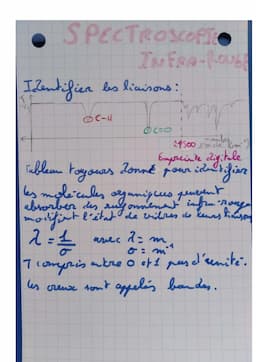 SPECTROSCOPIE
INFRA-ROUGE
Identifier les liaisons :
T
C-H
C=O
1500
Empreinte digitale
Tableau toujours donné pour identifier
Les molécules organiques peuvent
absorber des rayonnement infra-rouge
modifiant l'état de vibres de leurs liaisons
λ = 1/σ avec λ = m
σ = m⁻¹
T compris entre 0 et 1 pas d'unité.
Les creux sont appelés bandes.